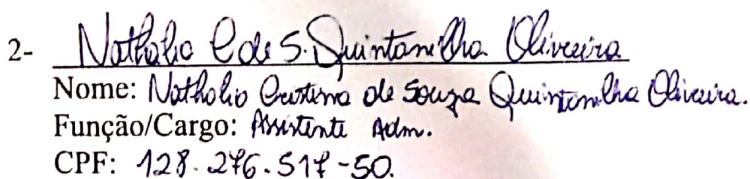 2- Nathalia C de S. Quintanilha Oliveira
Nome: Nathalia Cristina de Souza Quintanilha Oliveira.
Função/Cargo: Assistente Adm.
CPF: 128.276.517-50.